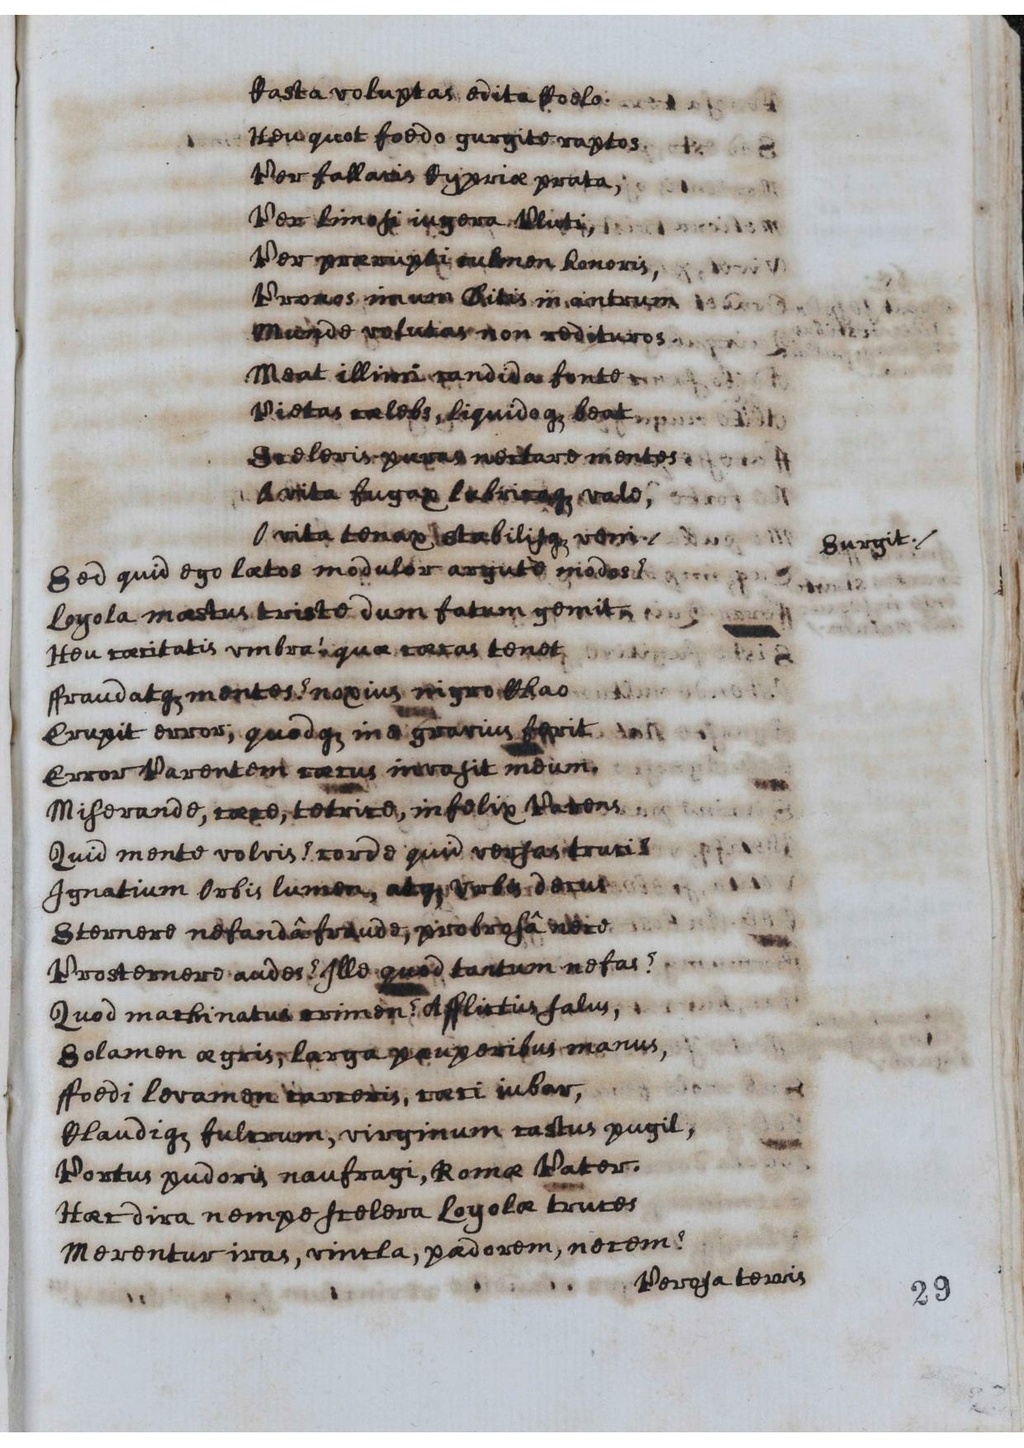 Casta voluptas edita Coelo.
Heu quot foedo gurgite raptos
Per fallacis Cypriæ prata,
Per limosi iugera Pluti,
Per prærupti culmen honoris,
Pronos imum Ditis in antrum
Munde volutas non redituros.
Meat illimi candida fonte
Pietas cælebs, liquidoq; beat
Sceleris puras nectare mentes
A vita fugax lubricaq; vale,
O vita tenax stabilisq; veni.
Surgit./
Sed quid ego lætos modulor argutè modos?
Loyola mæstus triste dum fatum gemit,
Heu cæcitatis vmbra! quæ cæcas tenet
ffraudatq; mentes? noxius nigro Chao
Erupit error, quodq; me gravius ferit
Error Parentem cæcus invasit meum.
Miserande, cæce, tetrice, infelix Parens
Quid mente volvis? corde quid versas truci?
Ignatium Orbis lumen, atq; Vrbis decus
Sternere nefandâ fraude, probrosâ nece
Prosternere audes? Ille quod tantum nefas?
Quod machinatus crimen? Afflictis salus,
Solamen ægris, larga pauperibus manus,
ffoedi levamen carceris, cæci iubar,
Claudiq; fulcrum, virginum castus pugil,
Portus pudoris naufragi, Romæ Pater.
Hæc dira nempe scelera Loyolæ truces
Merentur iras, vincla, pædorem, necem?
Perosa terris
29